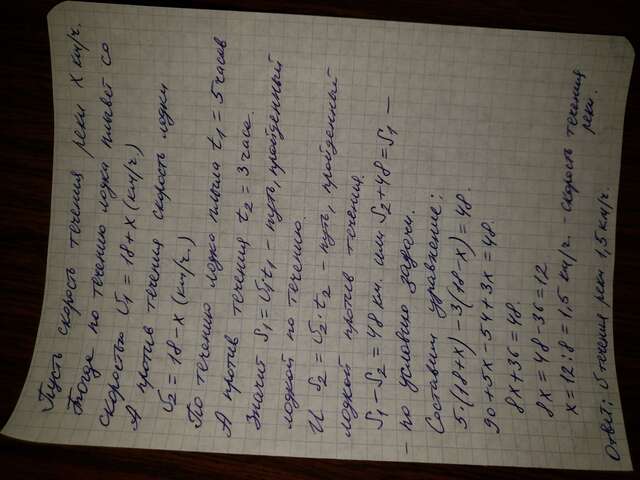 Пусть скорость течения реки x км/ч.
Тогда по течению лодка плывет со
скоростью V₁ = 18+x (км/ч)
А против течения скорость лодки
V₂ = 18-x (км/ч)
По течению лодка плыла t₁ = 5 часов
А против течения t₂ = 3 часа.
Значит S₁=V₁t₁ - путь, пройденный
лодкой по течению.
И S₂ = V₂·t₂ - путь, пройденный
лодкой против течения.
S₁-S₂ = 48 км. или S₂+48=S₁ —
- по условию задачи.
Составим уравнение:
5·(18+x)-3(18-x)=48.
90+5x-54+3x=48.
8x+36=48.
8x=48-36=12
x=12:8=1,5 км/ч. скорость течения
реки.
Ответ: V течения реки 1,5 км/ч.